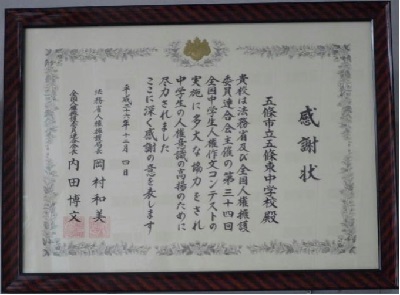 感謝状
五條市立五條東中学校殿
貴校は法務省及び全国人権擁護
委員連合会主催の第三十四回
全国中学生人権作文コンテストの
実施に多大な協力をされ
中学生の人権意識の高揚のために
尽力されました
ここに深く感謝の意を表します
平成二十六年十二月四日
法務省人権擁護局長 岡村和美
全国人権擁護委員連合会長 内田博文